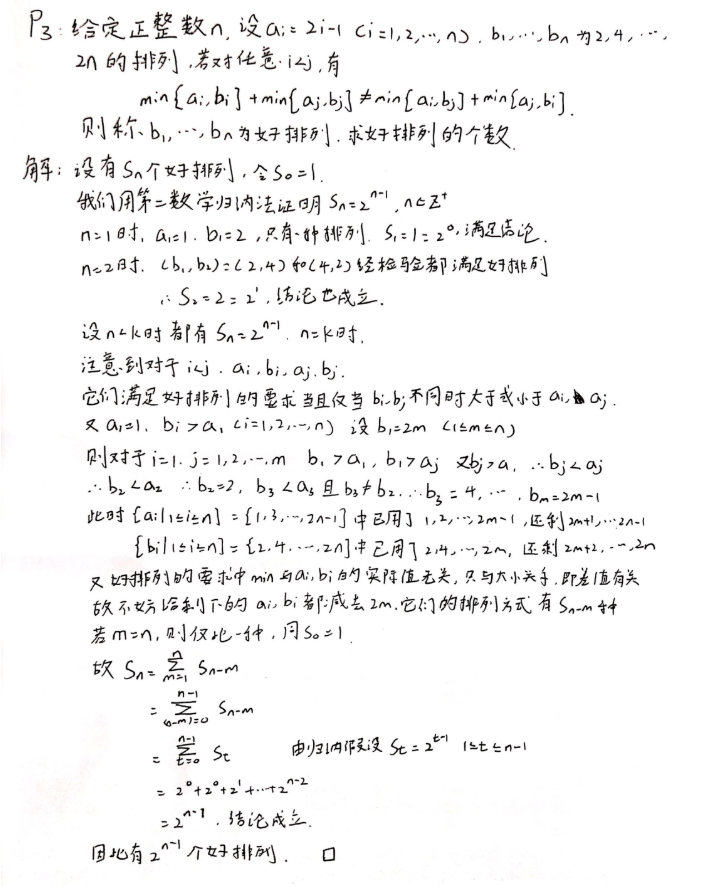 P3: 给定正整数n, 设ai=2i-1 (i=1,2,…,n). b1,…,bn为2,4,…,
2n的排列, 若对任意i<j, 有
min{ai,bi}+min{aj,bj}≠min{ai,bj}+min{aj,bi}.
则称b1,…,bn为好排列. 求好排列的个数.
解: 设有Sn个好排列, 令S0=1.
我们用第二数学归纳法证明 Sn=2^{n-1}, n∈Z+
n=1时, a1=1. b1=2, 只有一种排列. S1=1=2^0, 满足结论.
n=2时. (b1,b2)=(2,4)和(4,2)经检验全都满足好排列
∴S2=2=2^1, 结论也成立.
设n<k时都有Sn=2^{n-1}. n=k时,
注意到对于i<j. ai,bi,aj,bj.
它们满足好排列的要求当且仅当bi,bj不同时大于或小于ai,aj.
又a1=1. bi>a1 (i=1,2,…,n) 设b1=2m (1≤m≤n)
则对于i=1. j=1,2,…,m b1>a1, b1>aj 又bj>a1 ∴bj<aj
∴b2<a2 ∴b2=2, b3<a3且b3≠b2. ∴b3=4, …, bm=2m-1
此时{ai|1≤i≤n}={1,3,…,2n-1}中已用了1,2,…,2m-1, 还剩2m+1,…2n-1
{bi|1≤i≤n}={2,4,…,2n}中已用了2,4,…,2m, 还剩2m+2,…,2n
又好排列的要求中min与ai,bi的实际值无关, 只与大小关系, 即差值有关
故不妨给剩下的ai,bi都减去2m. 它们的排列方式有Sn-m种
若m=n, 则仅此一种, 同S0=1.
故 Sn=∑_{m=1}^{n} Sn-m
=∑_{(n-m)=0}^{n-1} Sn-m
=∑_{t=0}^{n-1} St 由归纳假设 St=2^{t-1} 1≤t≤n-1
=2^0+2^0+2^1+…+2^{n-2}
=2^{n-1}, 结论成立.
因此有2^{n-1}个好排列. □